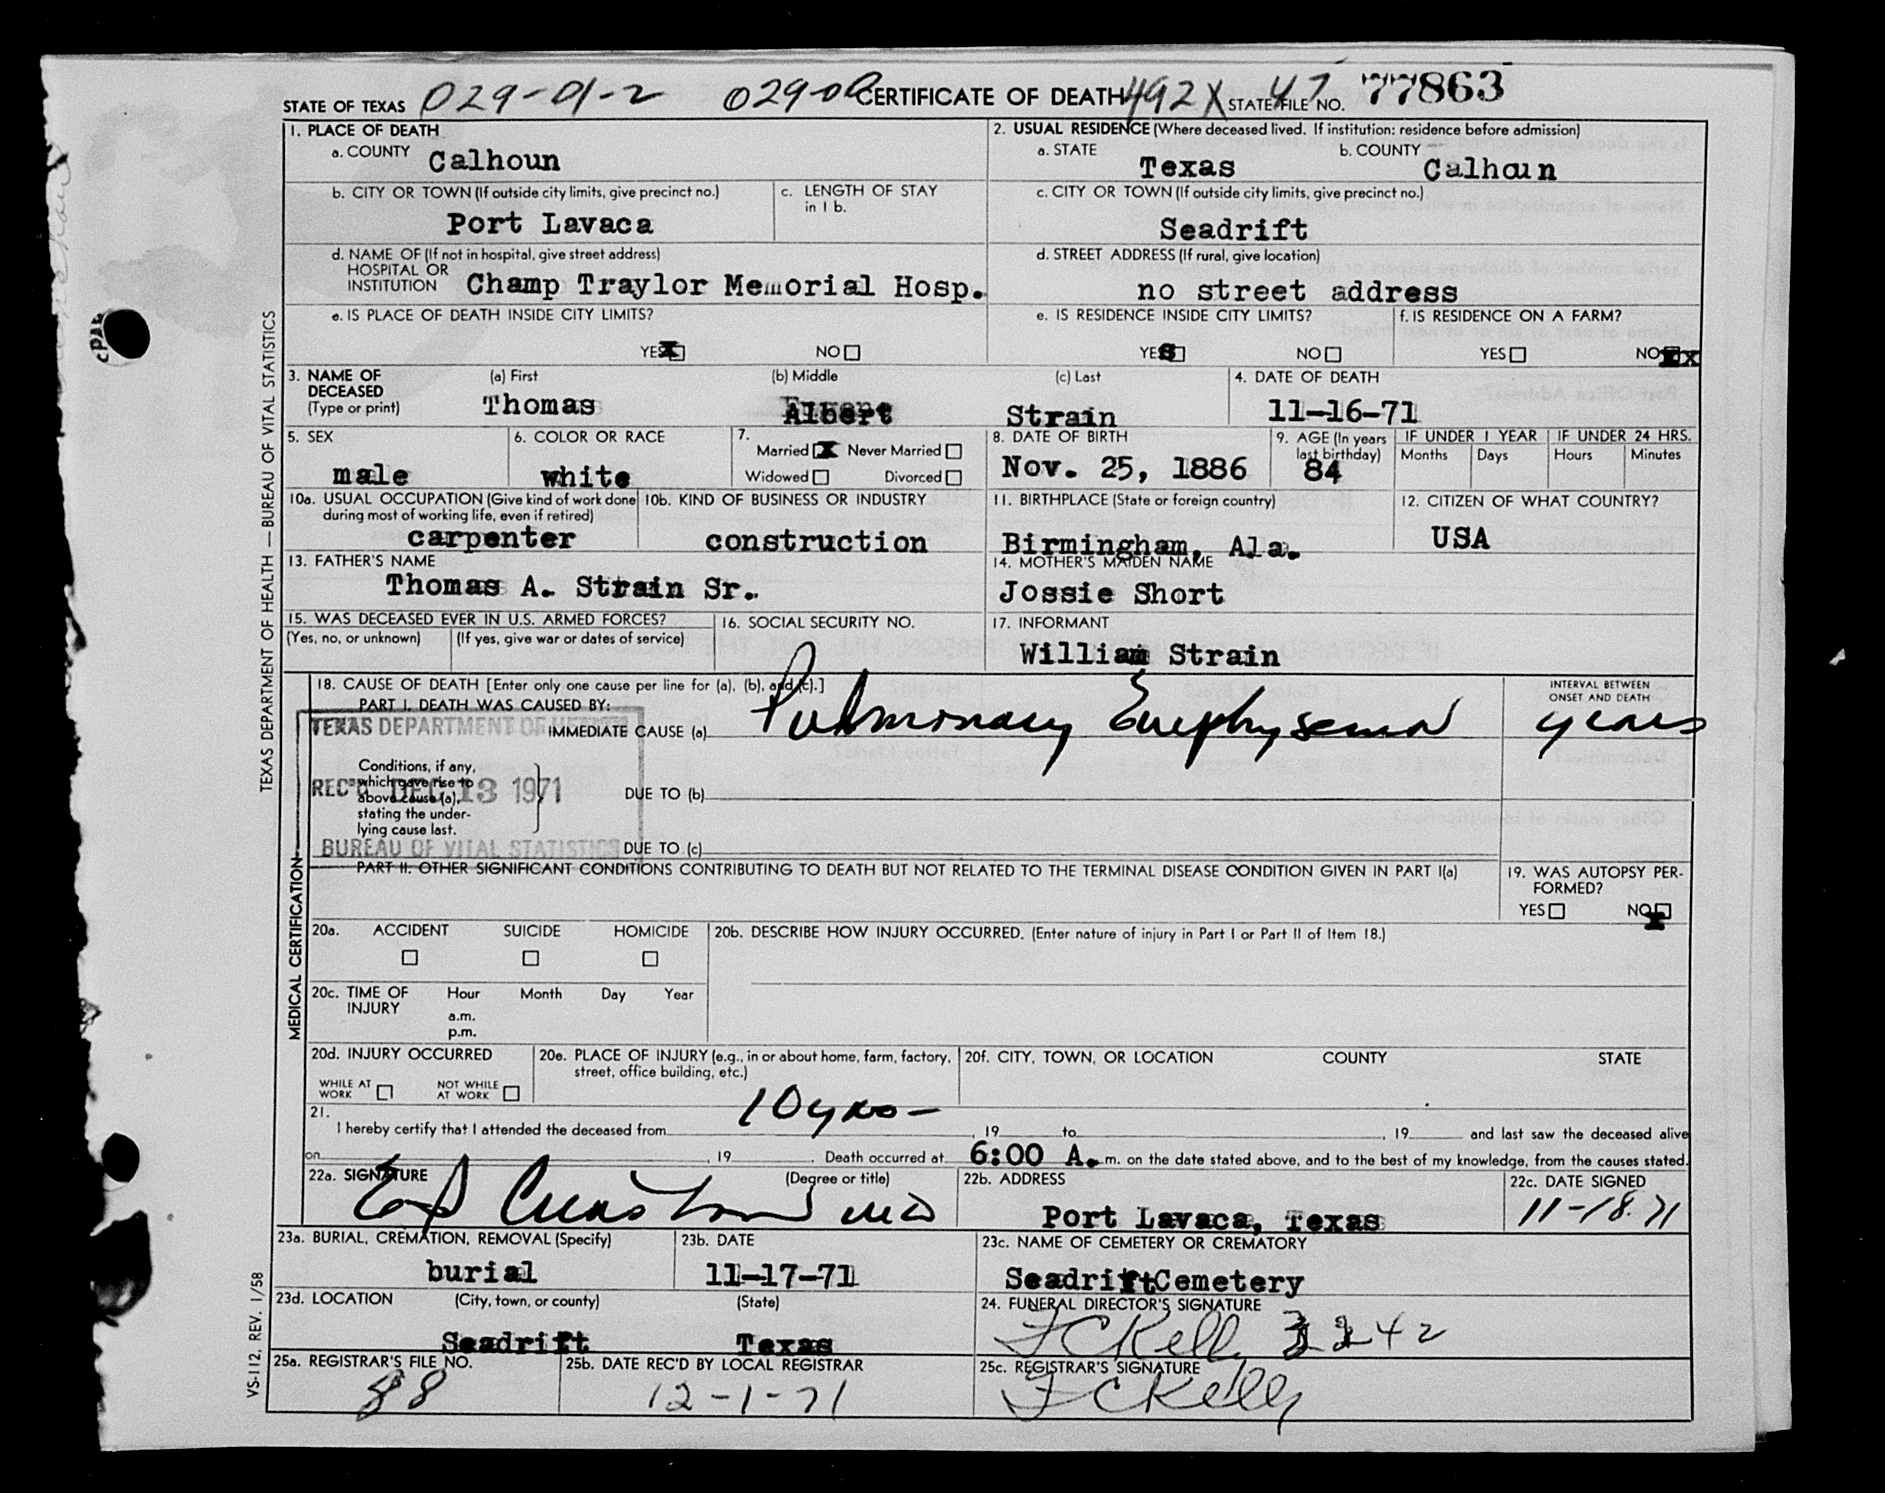 STATE OF TEXAS 029-01-2 029-00 CERTIFICATE OF DEATH 492X 47 STATE FILE NO. 77863
1. PLACE OF DEATH
a. COUNTY Calhoun
2. USUAL RESIDENCE (Where deceased lived. If institution: residence before admission)
a. STATE Texas b. COUNTY Calhoun
b. CITY OR TOWN (If outside city limits, give precinct no.) Port Lavaca
c. LENGTH OF STAY in 1 b.
c. CITY OR TOWN (If outside city limits, give precinct no.) Seadrift
d. NAME OF (If not in hospital, give street address)
HOSPITAL OR
INSTITUTION Champ Traylor Memorial Hosp.
d. STREET ADDRESS (If rural, give location)
no street address
e. IS PLACE OF DEATH INSIDE CITY LIMITS?
YES X NO
e. IS RESIDENCE INSIDE CITY LIMITS?
YES NO
f. IS RESIDENCE ON A FARM?
YES NO X
3. NAME OF DECEASED (Type or print) (a) First (b) Middle (c) Last
Thomas Albert Strain
4. DATE OF DEATH
11-16-71
5. SEX
male
6. COLOR OR RACE
white
7. Married X Never Married
Widowed Divorced
8. DATE OF BIRTH
Nov. 25, 1886
9. AGE (In years last birthday)
84
IF UNDER 1 YEAR IF UNDER 24 HRS.
Months Days Hours Minutes
10a. USUAL OCCUPATION (Give kind of work done during most of working life, even if retired)
carpenter
10b. KIND OF BUSINESS OR INDUSTRY
construction
11. BIRTHPLACE (State or foreign country)
Birmingham, Ala.
12. CITIZEN OF WHAT COUNTRY?
USA
13. FATHER'S NAME
Thomas A. Strain Sr.
14. MOTHER'S MAIDEN NAME
Jossie Short
15. WAS DECEASED EVER IN U.S. ARMED FORCES?
(Yes, no, or unknown) (If yes, give war or dates of service)
16. SOCIAL SECURITY NO.
17. INFORMANT
William Strain
18. CAUSE OF DEATH [Enter only one cause per line for (a), (b), and (c).]
PART I. DEATH WAS CAUSED BY:
IMMEDIATE CAUSE (a) Pulmonary Emphysema
INTERVAL BETWEEN ONSET AND DEATH
years
TEXAS DEPARTMENT OF HEALTH
REC'D DEC 13 1971
BUREAU OF VITAL STATISTICS
Conditions, if any,
which gave rise to
above cause (a),
stating the under-
lying cause last.
DUE TO (b)
DUE TO (c)
PART II. OTHER SIGNIFICANT CONDITIONS CONTRIBUTING TO DEATH BUT NOT RELATED TO THE TERMINAL DISEASE CONDITION GIVEN IN PART I(a)
19. WAS AUTOPSY PER-
FORMED?
YES NO X
20a. ACCIDENT SUICIDE HOMICIDE
20b. DESCRIBE HOW INJURY OCCURRED. (Enter nature of injury in Part I or Part II of Item 18.)
20c. TIME OF INJURY Hour Month Day Year
a.m.
p.m.
20d. INJURY OCCURRED
WHILE AT WORK NOT WHILE AT WORK
20e. PLACE OF INJURY (e.g., in or about home, farm, factory, street, office building, etc.)
20f. CITY, TOWN, OR LOCATION COUNTY STATE
21.
I hereby certify that I attended the deceased from 10 yrs - , 19 to , 19 and last saw the deceased alive
on , 19 . Death occurred at 6:00 A. m. on the date stated above, and to the best of my knowledge, from the causes stated.
22a. SIGNATURE (Degree or title)
MD
22b. ADDRESS
Port Lavaca, Texas
22c. DATE SIGNED
11-18-71
23a. BURIAL, CREMATION, REMOVAL (Specify)
burial
23b. DATE
11-17-71
23c. NAME OF CEMETERY OR CREMATORY
Seadrift Cemetery
23d. LOCATION (City, town, or county) (State)
Seadrift Texas
24. FUNERAL DIRECTOR'S SIGNATURE
F C Kelly
25a. REGISTRAR'S FILE NO.
88
25b. DATE REC'D BY LOCAL REGISTRAR
12-1-71
25c. REGISTRAR'S SIGNATURE
F C Kelly
TEXAS DEPARTMENT OF HEALTH — BUREAU OF VITAL STATISTICS
MEDICAL CERTIFICATION
VS-112, REV. 1/58